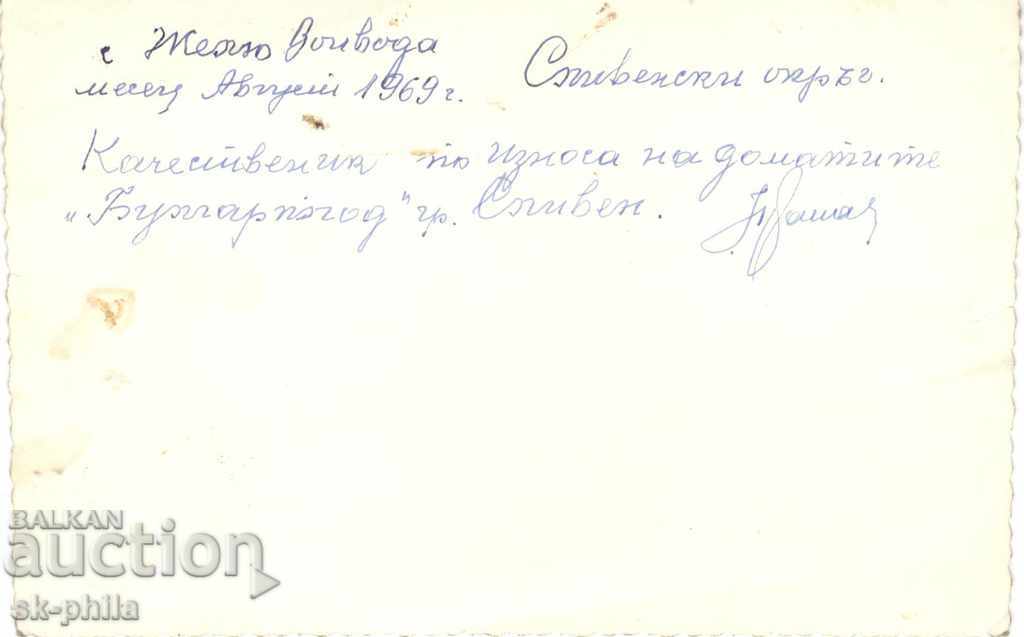 с Желю Войвода
месец Август 1969 г.
Сливенски окръг.
Качественик по износа на доматите
„Булгарплод" гр. Сливен.
BALKAN
auction
sk-phila